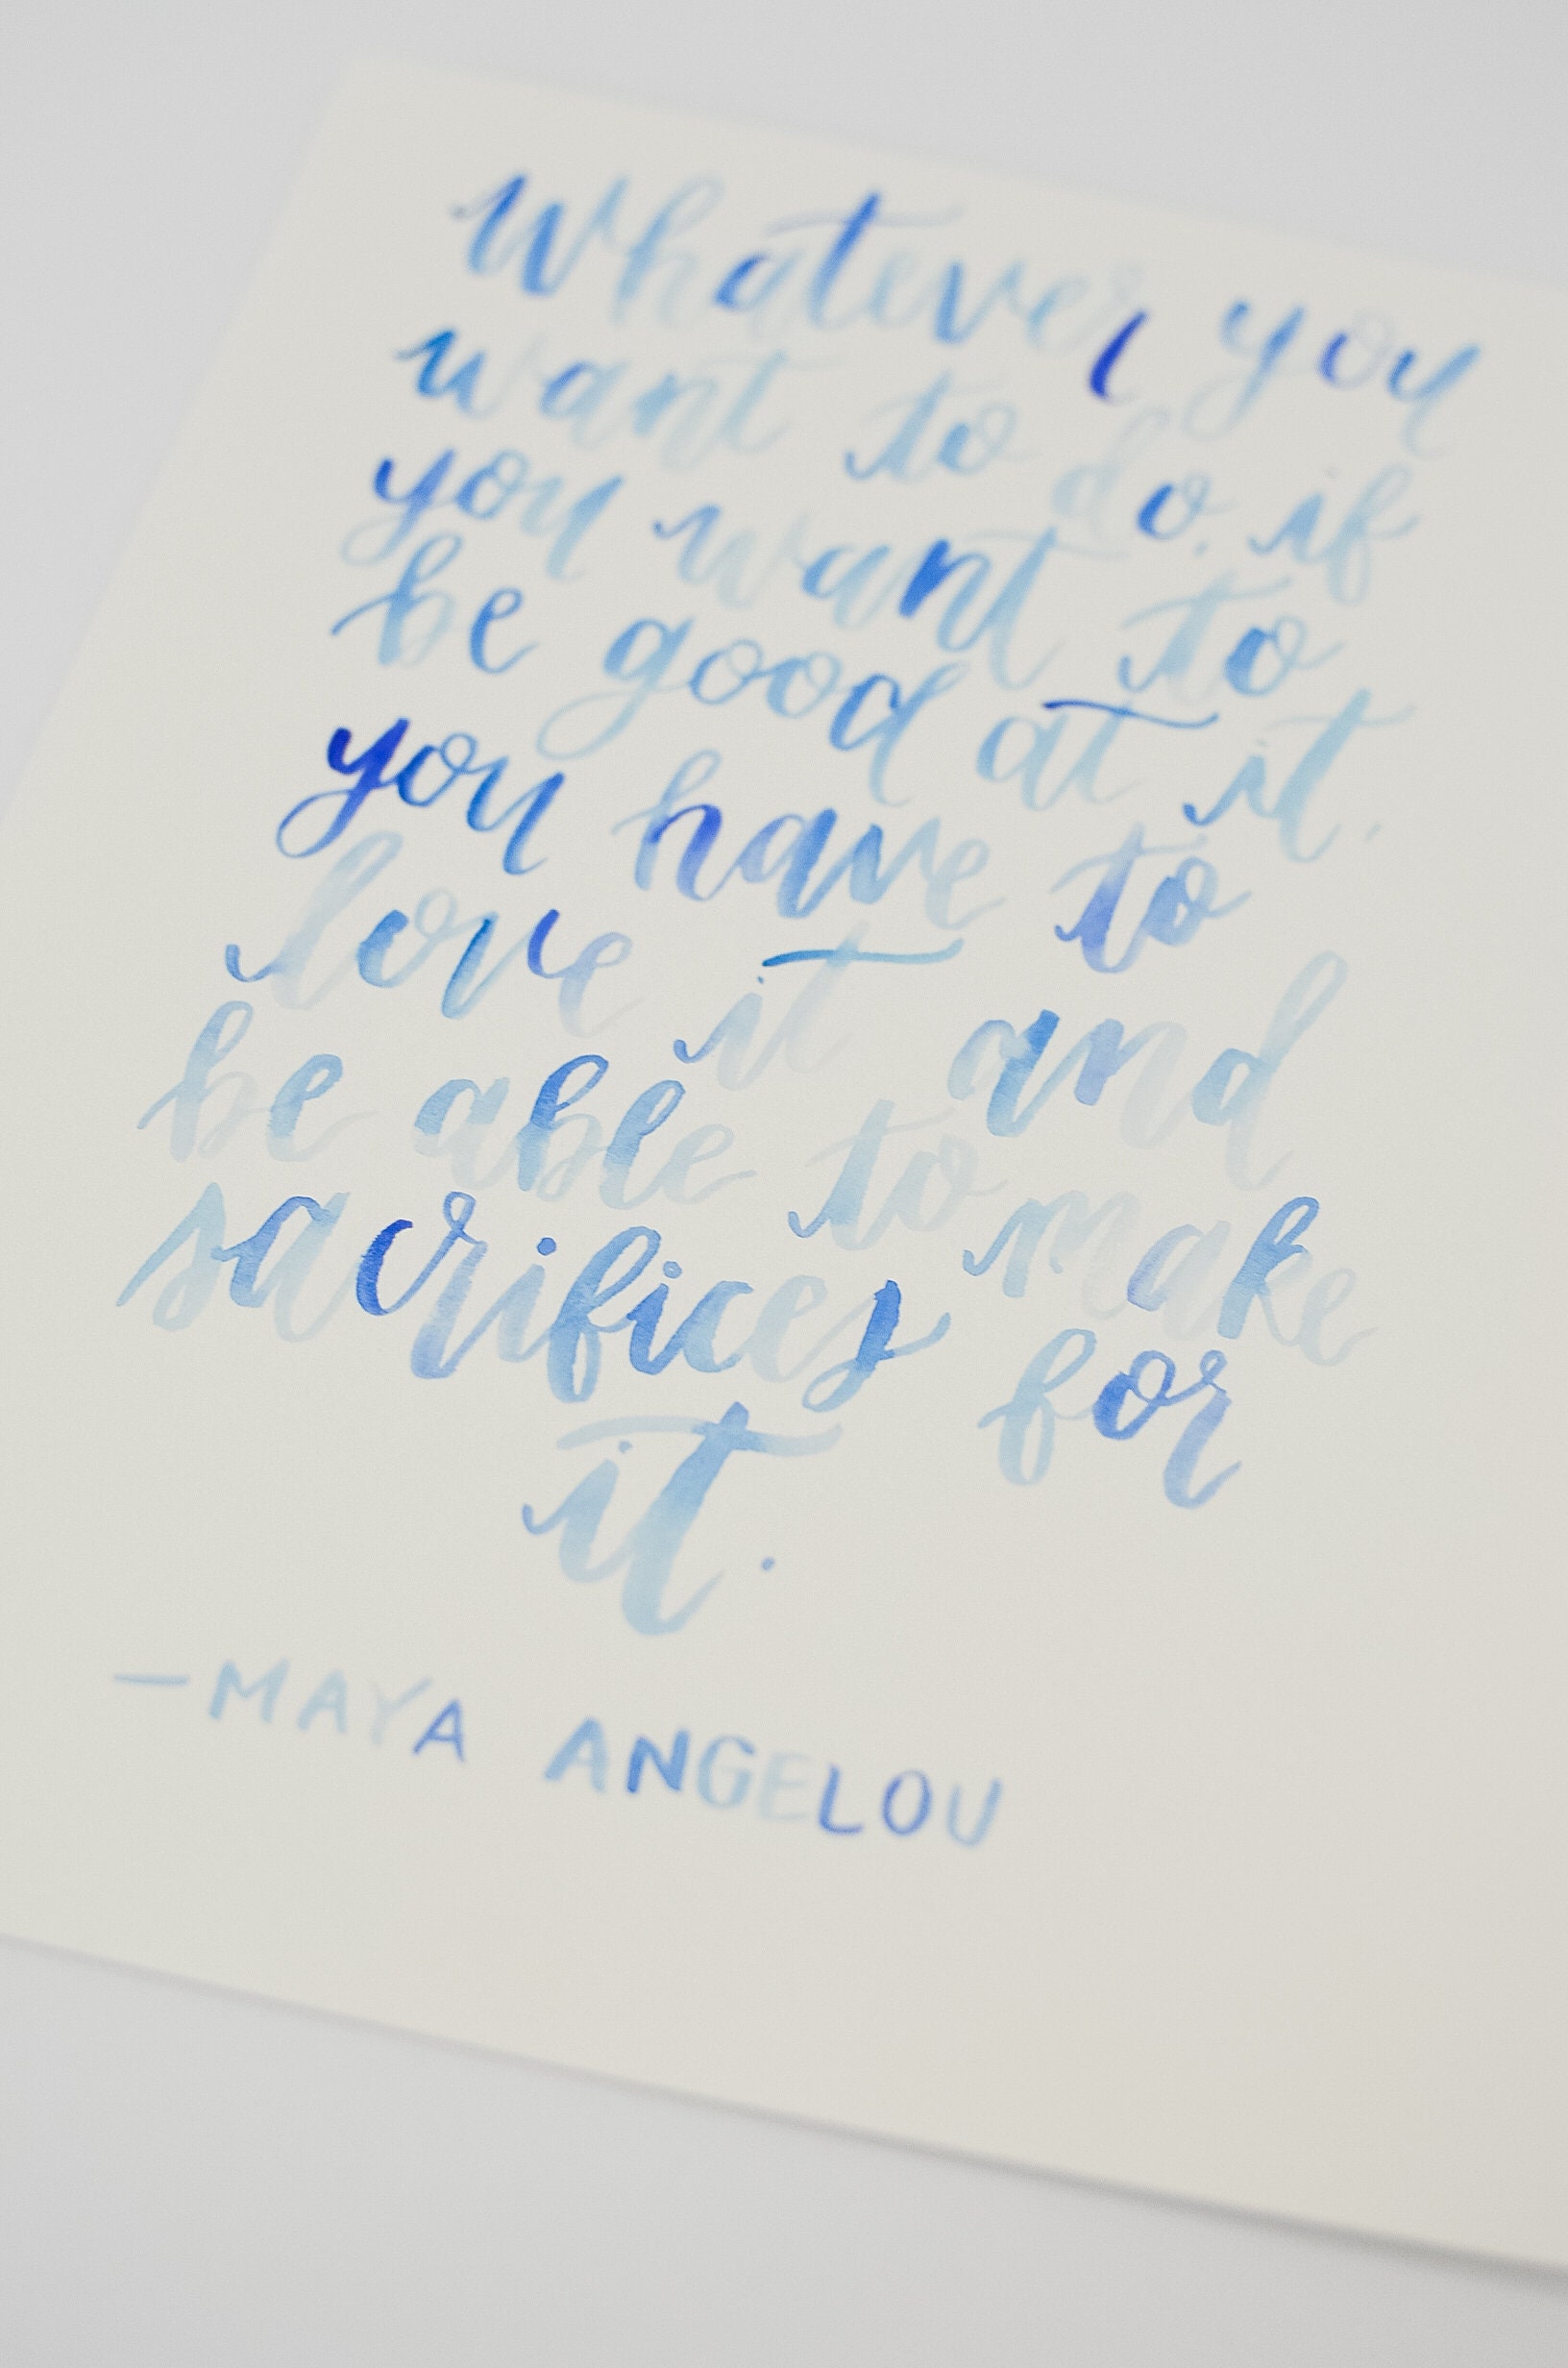 Whatever you
want to do, if
you want to
be good at it,
you have to
love it and
be able to make
sacrifices for
it.
—MAYA ANGELOU